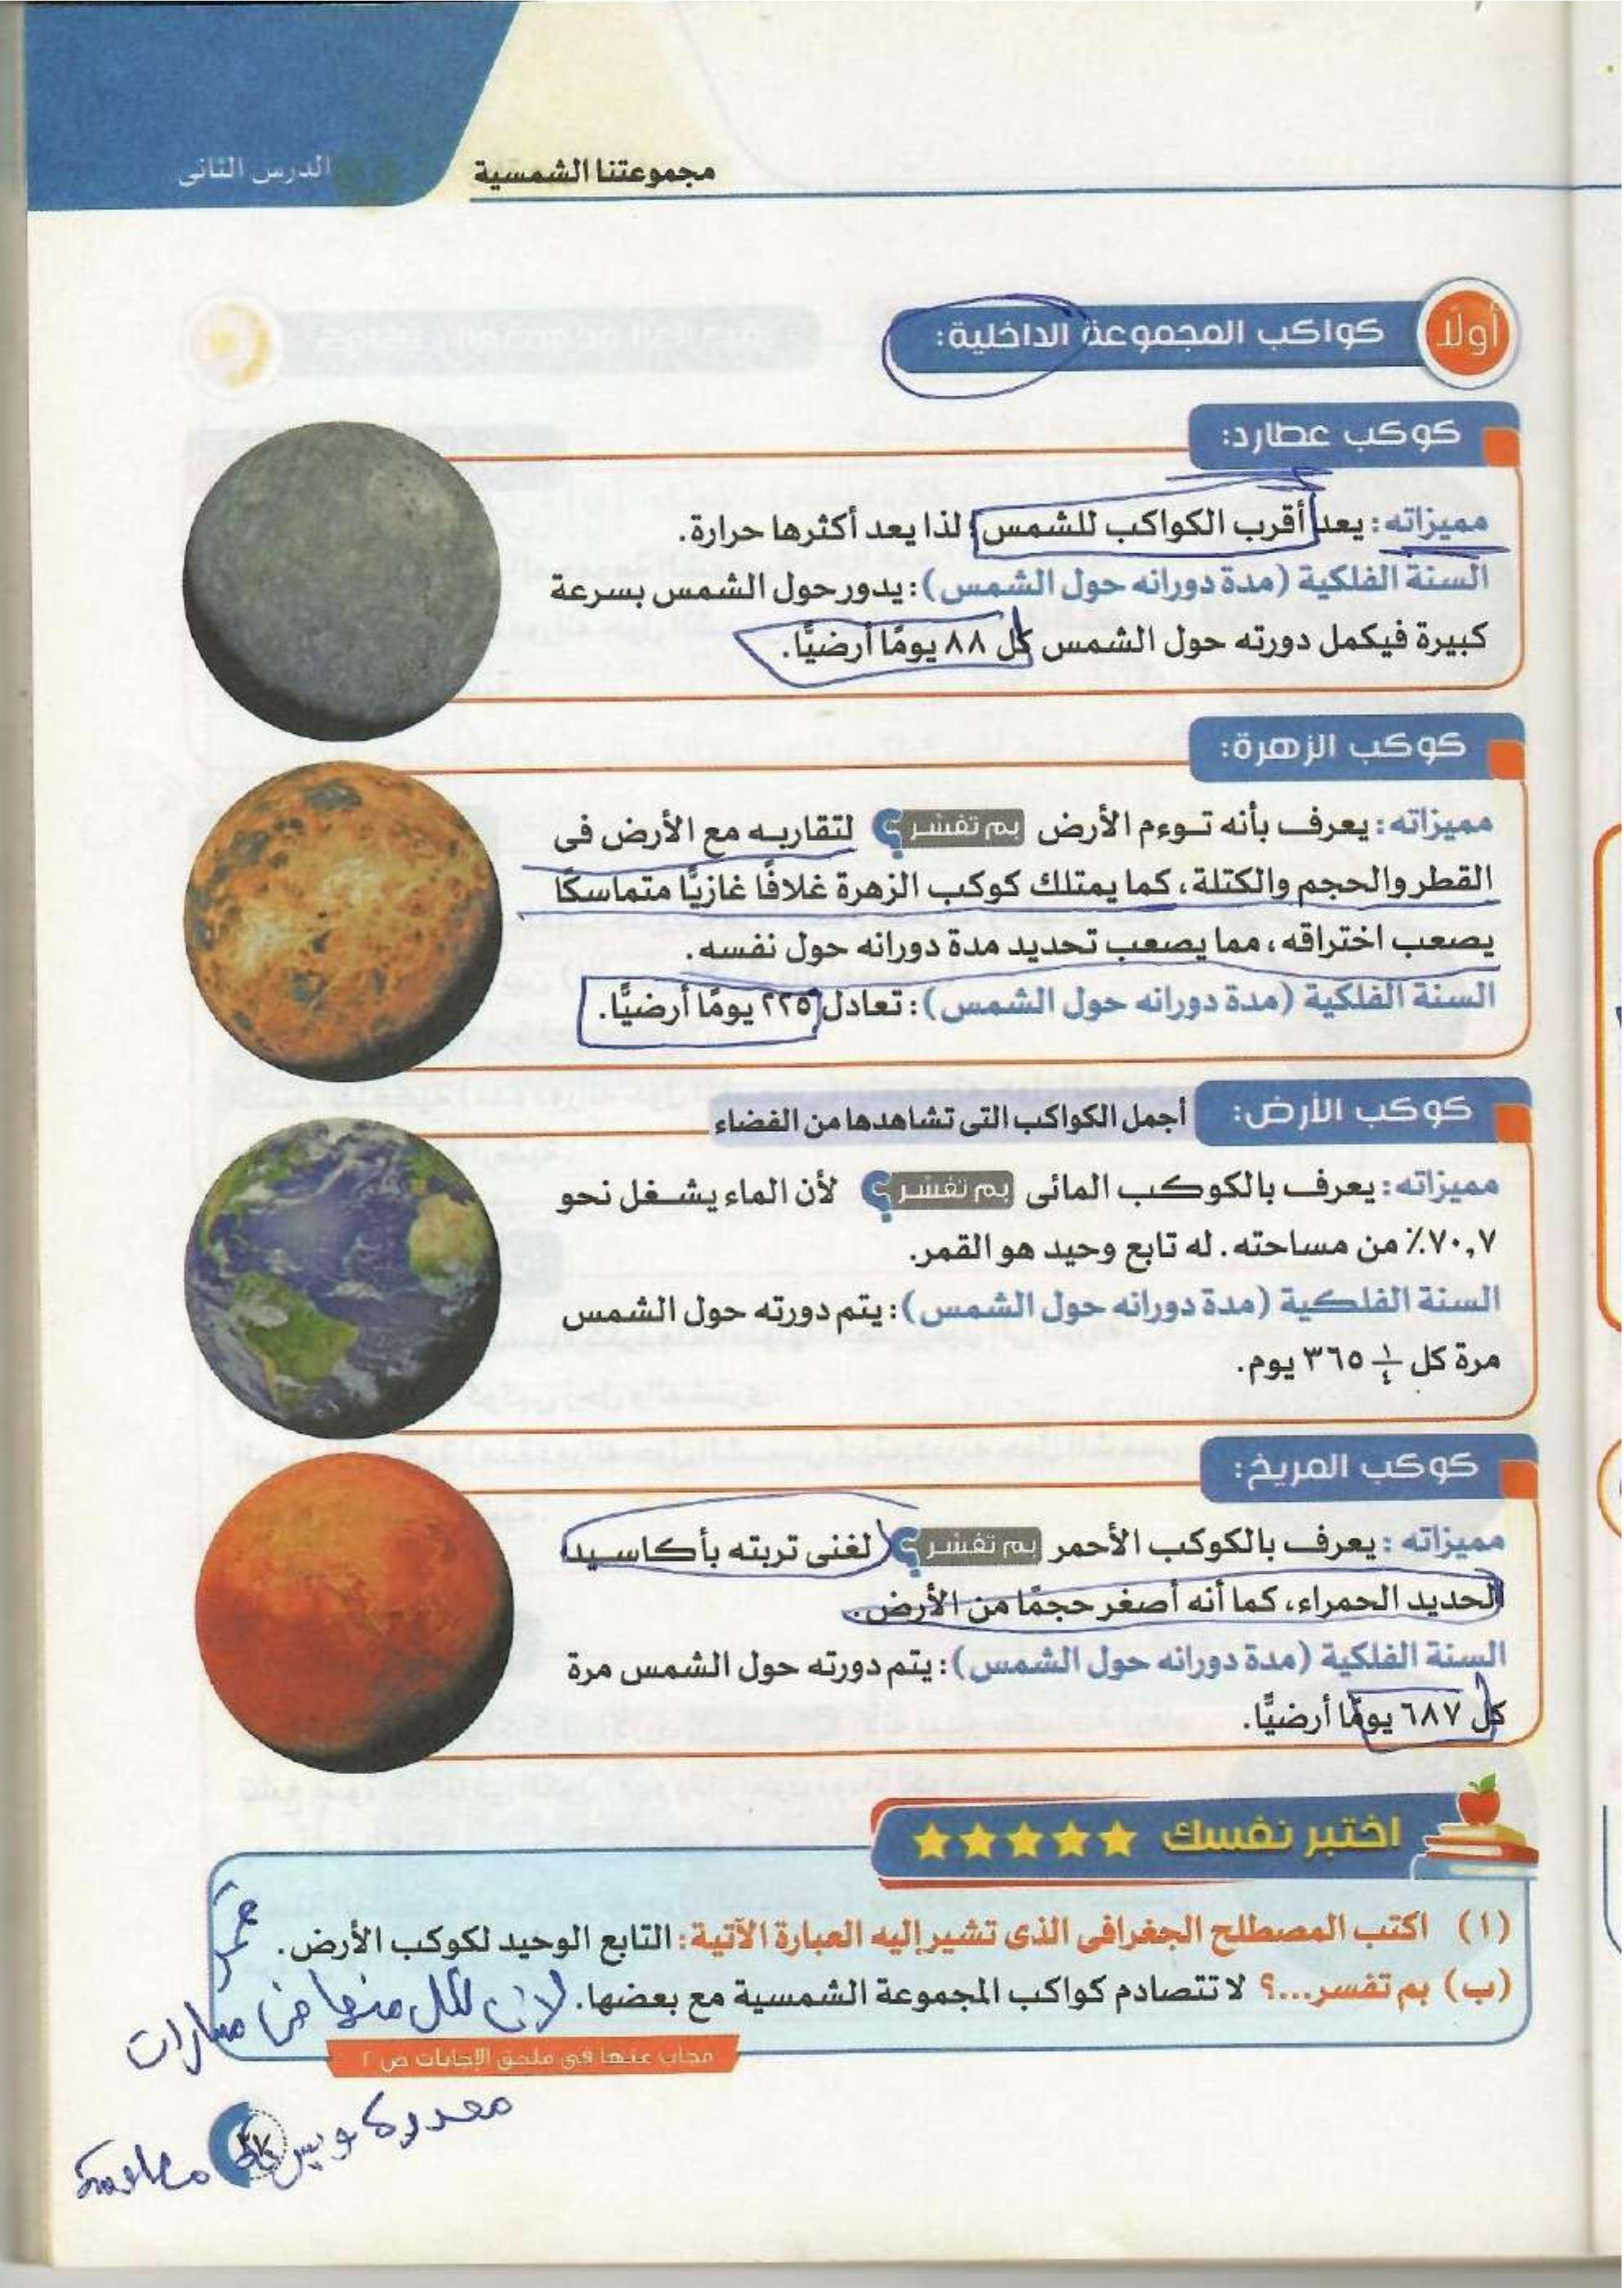 مجموعتنا الشمسية
الدرس الثانى
أولًا
كواكب المجموعة الداخلية:
كوكب عطارد:
مميزاته: يعد أقرب الكواكب للشمس، لذا يعد أكثرها حرارة.
السنة الفلكية (مدة دورانه حول الشمس): يدور حول الشمس بسرعة
كبيرة فيكمل دورته حول الشمس كل ٨٨ يومًا أرضيًّا.
كوكب الزهرة:
مميزاته: يعرف بأنه توءم الأرض بم تفسر؟ لتقاربه مع الأرض فى
القطر والحجم والكتلة، كما يمتلك كوكب الزهرة غلافًا غازيًّا متماسكًا
يصعب اختراقه، مما يصعب تحديد مدة دورانه حول نفسه.
السنة الفلكية (مدة دورانه حول الشمس): تعادل ٢٢٥ يومًا أرضيًّا.
كوكب الأرض:
أجمل الكواكب التى تشاهدها من الفضاء
مميزاته: يعرف بالكوكب المائى بم تفسر؟ لأن الماء يشغل نحو
٧٠,٧٪ من مساحته. له تابع وحيد هو القمر.
السنة الفلكية (مدة دورانه حول الشمس): يتم دورته حول الشمس
مرة كل ١/٤ ٣٦٥ يوم.
كوكب المريخ:
مميزاته: يعرف بالكوكب الأحمر بم تفسر؟ لغنى تربته بأكاسيد
الحديد الحمراء، كما أنه أصغر حجمًا من الأرض.
السنة الفلكية (مدة دورانه حول الشمس): يتم دورته حول الشمس مرة
كل ٦٨٧ يومًا أرضيًّا.
اختبر نفسك
(١) اكتب المصطلح الجغرافى الذى تشير إليه العبارة الآتية: التابع الوحيد لكوكب الأرض.
قمر
(ب) بم تفسر...؟ لا تتصادم كواكب المجموعة الشمسية مع بعضها.
لان لكل منها مسارات
مجاب عنها فى ملحق الإجابات ص ٢
محددة